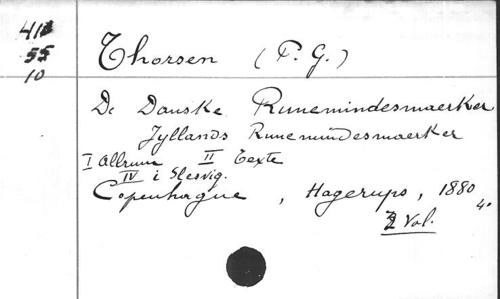 41
55
10
Thorsen (P. G.)
De Danske Runemindesmaerker
Jyllands Runemindesmaerker
I Allrune II Texte
IV i Slesvig.
Copenhague, Hagerups, 1880
4o.
2 Vol.